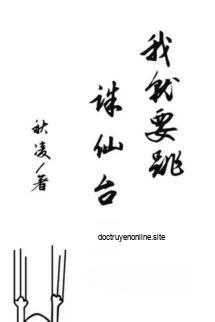 我就要跳
诛仙台
秋凌/著
doctruyenonline.site